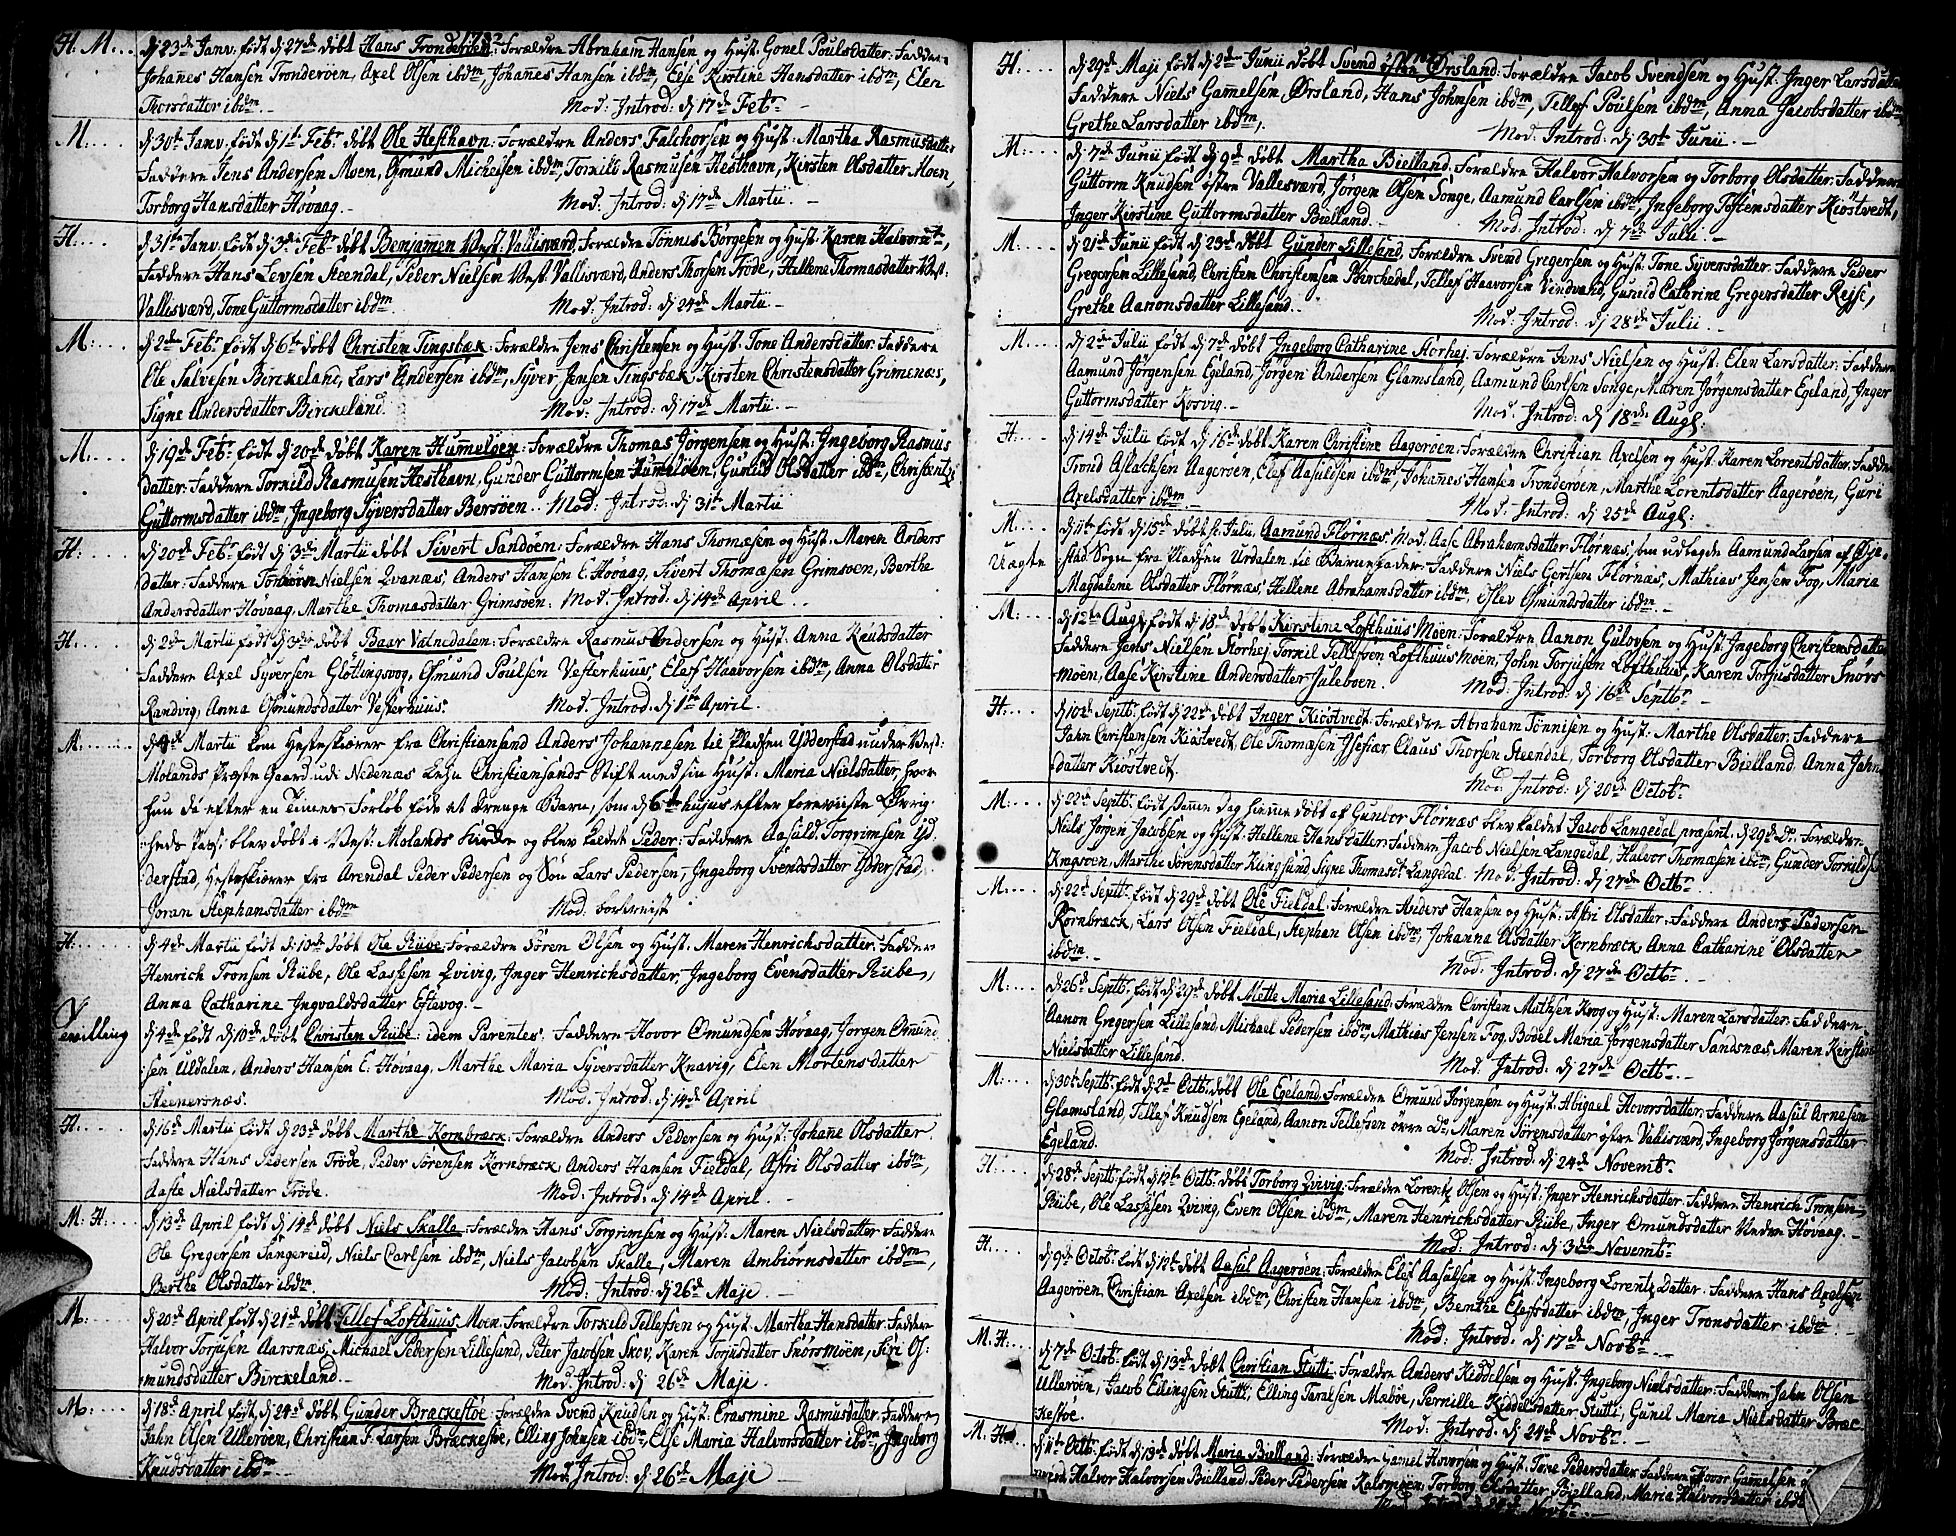 1782
H. M. dj 23de Janv: født dj 27de døbt Hans Tronderøen: Forældre Abraham Hansen og Hust: Gonel Poulsdatter: Faddere
Johañes Hansen Tronderøen, Axel Olsen ibdm, Johañes Hansen ibdm, Else Kirstine Hansdatter ibdm, Elen
Thorsdatter ibdm. Mod: Introd: dj 17de Febr.
M. dj 30te Janv: født dj 1te Febr. døbt Ole Hesthavn: Forældre Anders Falchorsen og Hust: Martha Rasmusdatter
Faddere Jens Andersen Moen, Osmund Michelsen ibdm, Tornild Rasmusen Hesthavn, Kirsten Olsdatter Moen,
Torborg Hansdatter Høvaag. Mod: Introd: dj 17de Martii.
H. dj 31te Janv. født dj 3die Febr. døbt Benjamen Vest. Vallisværd, Forældre Tønnis Borgesen og Hust: Karen Halvorsdt.
Faddere Hans Levsen Steendal, Peder Nielsen Vest. Vallisværd, Anders Thorsen Trøde, Hellene Thomasdatter Vest:
Vallisværd, Tone Guttormsdatter ibdm. Mod: Introd: dj 24de Martii
M. dj 2den Febr. født dj 6te døbt Christen Tingsbæk: Forældre Jens Christensen og Hust: Tone Andersdatter: Faddere
Ole Salvesen Birckeland, Lars Andersen ibdm, Syver Jensen Tingsbæk, Kirsten Christensdatter Grimenæs,
Signe Andersdatter Birckeland. Mod: Introd: dj 17de Martii.
M. dj 19de Febr. født dj 20de døbt Karen Humeløen: Forældre Thomas Jørgensen og Hust: Ingeborg Rasmus
datter: Faddere Tornild Rasmusen Hesthavn, Gunder Guttormsen Humeløen, Gunild Olsdatter ibdm, Christentz
Guttormsdatter ibdm, Ingeborg Syversdatter Bersøen. Mod: Introd: dj 31te Martii
H: dj 20de Febr. født dj 3die Martii døbt Sivert Sandøen: Forældre Hans Thomæsen og Hust: Maren Anders
datter: Faddere Nielsen Qvanæs, Anders Hansen E. Hovaag, Sivert Thomæsen Grimsøen, Berthe
Andersdatter Høvaag, Marthe Thomasdatter Grimsøen: Mod: Introd: dj 14de April.
H. dj 2de Martii født dj 3die døbt Baar Valnedalen: Forældre Rasmus Andersen og Hust: Anna Knudsdatter
Faddere Axel Syversen Glottingsvog, Osmund Poulsen Vesterhuus, Elef Haavorsen ibdm, Anna Olsdatter
Randvig, Anna Osmundsdatter Vesterhuus. Mod: Introd: dj 1te April.
M. Martii kom Hesteskiærer fra Christiansand Anders Johannesen til Pladsen Ydderstad under Vest:
Molands Præste Gaard udi Nedenæs Lehn Christiansands Stift med sin Hust: Maria Nielsdatter, hvor
hun da efter en Times Forløb føde et Drenge Barn, som dj 6te hujus efter foreviiste Øvrig:
heds Pass: blev døbt i Vest: Molands Kirche og blev kaldet Peder: Faddere Aasuld Torgrimsen Yd
derstad, Hesteskiærer fra Arendal Peder Pedersen og Søn Lars Pedersen, Ingeborg Svendsdatter Ydderstad,
Joran Stephansdatter ibdm Mod:
H. dj 4de Martii født dj 10de døbt Ole Ribe: Forældre Søren Olsen og Hust: Maren Henrichsdatter: Faddere
Henrich Tronsen Ribe, Ole Lassesen Qvivig, Inger Henrichsdatter, Ingeborg Evensdatter Ribe,
Anna Catharine Ingvaldsdatter Estevog.
Tvilling dj 4de født dj 10de døbt Christen Ribe: idem Parentes: Faddere Hovor Omundsen Høvaag, Jørgen Omund
sen Uldalen, Anders Hansen E: Høvaag, Marthe Maria Syversdatter Knavig, Elen Mortensdatter
Steenersnæs. Mod: Introd: dj 14de April
H. dj 16de Martii født dj 23de døbt Marthe Kornbræck: Forældre Anders Pedersen og Hust: Johañe Olsdatter.
Faddere Hans Pedersen Trøde, Peder Sørensen Kornbræck, Anders Hansen Fieldal, Astri Olsdatter ibdm,
Aaste Nielsdatter Trøde. Mod: Introd: dj 14de April.
M. H. dj 13de April født dj 14de døbt Niels Skalla: Forældre Hans Torgrimsen og Hust: Maren Nielsdatter: Faddere
Ole Gregersen Tangereid, Niels Carlsen ibdm, Niels Jacobsen Skalle, Maren Ambiørnsdatter ibdm,
Berthe Olsdatter ibdm. Mod: Introd: dj 26de Maje.
M: dj 20de April født dj 21de døbt Tellef Lofthuus Moen: Forældre Torkild Tellefsen og Hust: Martha Hansdatter: Faddere
Halvor Torjusen Aarsnæs, Michael Pedersen Lillesand, Peter Jacobsen Skov, Karen Torjusdatter Snorsmoen, Siri Os:
mundsdatter Birckeland. Mod: Introd: dj 26de Maje.
M. dj 18de April født dj 24de døbt Gunder Brackestøe: Forældre Svend Knudsen og Hust: Erasmine Rasmusdatter: Faddere
Jahn Olsen Ullerøen, Christian F. Larsen Bræckestøe, Elling Johnsen ibdm, Else Maria Halvorsdatter ibdm, Ingeborg
Knudsdatter ibdm. Mod: Introd: dj 26de Maje
H: dj 29de Maji født dj 2de Junii døbt Svend østre Ørsland: Forældre Jacob Svendsen og Hust: Inger Larsdatter
Faddere Niels Gamelsen Ørsland, Hans Johnsen ibdm, Tellef Poulsen ibdm, Anna Jacobsdatter ibdm,
Grethe Larsdatter ibdm. Mod. Introd: dj 30te Junii.
M: dj 7de Junii født dj 9de døbt Martha Bielland: Forældre Halvor Halvorsen og Torborg Olsdatter: Faddere
Guttorm Knudsen østre Vallesværd, Jørgen Olsen Songe, Aamund Carlsen ibdm, Ingeborg Tostensdatter Kiøstvedt,
Inger Kirstine Guttormsdatter Bielland. Mod: Introd: dj 7de Julii.
M. dj 21de Junii født dj 23de døbt Gunder Lillesand, Forældre Svend Gregersen og Hust: Tone Syversdatter: Faddere Peder
Gregersen Lillesand, Christen Christensen Birchedal, Tellef Haavorsen Vindvold, Guneld Cathrine Gregersdatter Rejse,
Grethe Aanonsdatter Lillesand. Mod: Introd: dj 28de Julii.
M. dj 2de Julii født dj 7de døbt Ingeborg Catharine Storhej: Forældre Jens Nielsen og Hust: Elen Larsdatter: Faddere
Aamund Jørgensen Egeland, Jørgen Andersen Glamsland, Aamund Carlsen Songe, Maren Jørgensdatter Egeland, Inger
Guttormsdatter Kosvig. Mod: Introd: dj 18de Augs:
H: dj 14de Julii født dj 16de døbt Karen Christine Aagerøen: Forældre Christian Axelsen og Hust: Karen Lorentsdatter: Faddere
Trond Aslachsen Aagerøen, Elef Aasulsen ibdm, Johañes Hansen Tronderøen, Marthe Lorentsdatter Aagerøen, Guri
Axelsdatter ibdm. Mod: Introd: dj 25de Augs:
M: Uægte dj 11te født dj 15de døbt st. Julii Aamund Flørnæs: Mod. Aase Abrahamsdatter Flørnæs, som udlagde Aamund Larsen af Øye:
stad Sogn fra Pladsen Urdalen til Barnefader: Faddere Niels Gertsen Flørnæs, Mathias Jensen Fog, Maria
Magdalene Olsdatter Flørnæs, Hellene Abrahamsdatter ibdm, Eslev Osmundsdatter ibdm.
M: dj 12te Augs født dj 18de døbt Kirstine Lofthuus Moen: Forældre Aanon Gulovsen og Hust: Ingeborg Christensdatter
Faddere Jens Nielsen Storhej, Tornil Tellefsen Lofthuus Moen, John Torjusen Lofthuus, Karen Torjusdatter Snørs
moen, Aase Kirstine Andersdatter Juleboen. Mod: Introd: dj 16de Septbr.
H: dj 10de Septb: født dj 22de døbt Inger Kiøstvedt: Forældre Abraham Tønnisen og Hust: Marthe Olsdatter: Faddere
Jahn Christensen Kiøstvedt, Ole Thomæsen Claus Thorsen Steendal, Torborg Olsdatter Bielland, Anna Jahns
datter Kiøstvedt. Mod: Introd: dj 20de Octob:
M: dj 22de Septb: født, samme Dag hieme døbt af Guntor Flørnæs blev kaldet Jacob Langedal, præsent. dj 29de D. Forældre
Niels Jørgen Jacobsen og Hust: Hellene Hansdatter: Faddere Jacob Nielsen Langedal, Halvor Thomæsen ibm, Gunder Tornildsen
Krogsøen, Marthe Sørensdatter Kungsund, Signe Thomasdt. Langedal. Mod: Introd: dj 27de Octbr.
M. dj 22de Septb: født dj 29de døbt Ole Fieldal: Forældre Anders Hansen og Hust: Astri Olsdatter: Faddere Anders Pedersen
Kornbræck, Lars Olsen Fieldal, Stephan Olsen ibdm, Johanna Olsdatter Kornbræck, Anna Catharine Olsdatter
ibdm. Mod: Introd: dj 27de Octbr.
M: dj 26de Septb: født dj 29de døbt Mette Maria Lillesand: Forældre Christen Mathsen Krog og Hust: Maren Larsdatter: Faddere
Aanon Gregersen Lillesand, Michael Pedersen ibdm, Mathias Jensen Fog, Bodel Maria Jørgensdatter Sandsnæs, Maren Kirstine
Nielsdatter Lillesand. Mod: Introd: dj 27de Octbr.
M: dj 30te Septb: født dj 2de Octb: døbt Ole Egeland: Forældre Omund Jørgensen og Hust: Abigael Hovorsdatter: Faddere Aasul Arnesen
Glamsland, Tellef Knudsen Egeland, Aanon Tellefsen øvre Do, Maren Sørensdatter østre Vallisværd, Ingeborg Jørgensdatter
Egeland. Mod: Introd: dj 24de Novembr.
H: dj 28de Septb: født dj 12te Octb: døbt Torborg Qvivig: Forældre Lorentz Olsen og Hust: Inger Henrichsdatter: Faddere Henrich Tronsen
Ribe, Ole Lassesen Qvivig, Even Olsen ibdm, Maren Henrichsdatter Ribe, Inger Omundsdatter Neder Høvaag.
Mod: Introd: dj 3die Novembr.
H. dj 9de Octob: født dj 12te døbt Aasul Aagerøen: Forældre Elef Aasulsen og Hust: Ingeborg Lorentzdatter: Faddere Hans Axelsen
Aagerøen, Christian Axelsen ibdm, Christen Hansen ibdm, Benthe Elefsdatter ibdm, Inger Tronsdatter ibdm.
Mod: Introd: dj 17de Novbr.
M. H: dj 7de Octob: født dj 13de døbt Christian Stutti: Forældre Anders Kiddelsen og Hust: Ingeborg Nielsdatter: Faddere Jahn Olsen
Ullerøen, Jacob Ellingsen Stutti, Elling Taralsen Madøe, Pernille Kiddelsdatter Stutti, Gunil Maria Nielsdatter Bræc
kestøe. Mod: Introd: dj 24de Novbr.
M. H. dj 11te Octb: født dj 13de døbt Maria Bielland: Forældre Gamel Hovorsen og Hust: Tone Pedersdatter: Faddere Hovor Gamelsen
Halvor Halvorsen Bielland, Peder Pedersen Kalsmoen, Torborg Olsdatter Bielland, Maria Halvorsdatter ibdm
Mod: Introd: dj 24de Novbr.